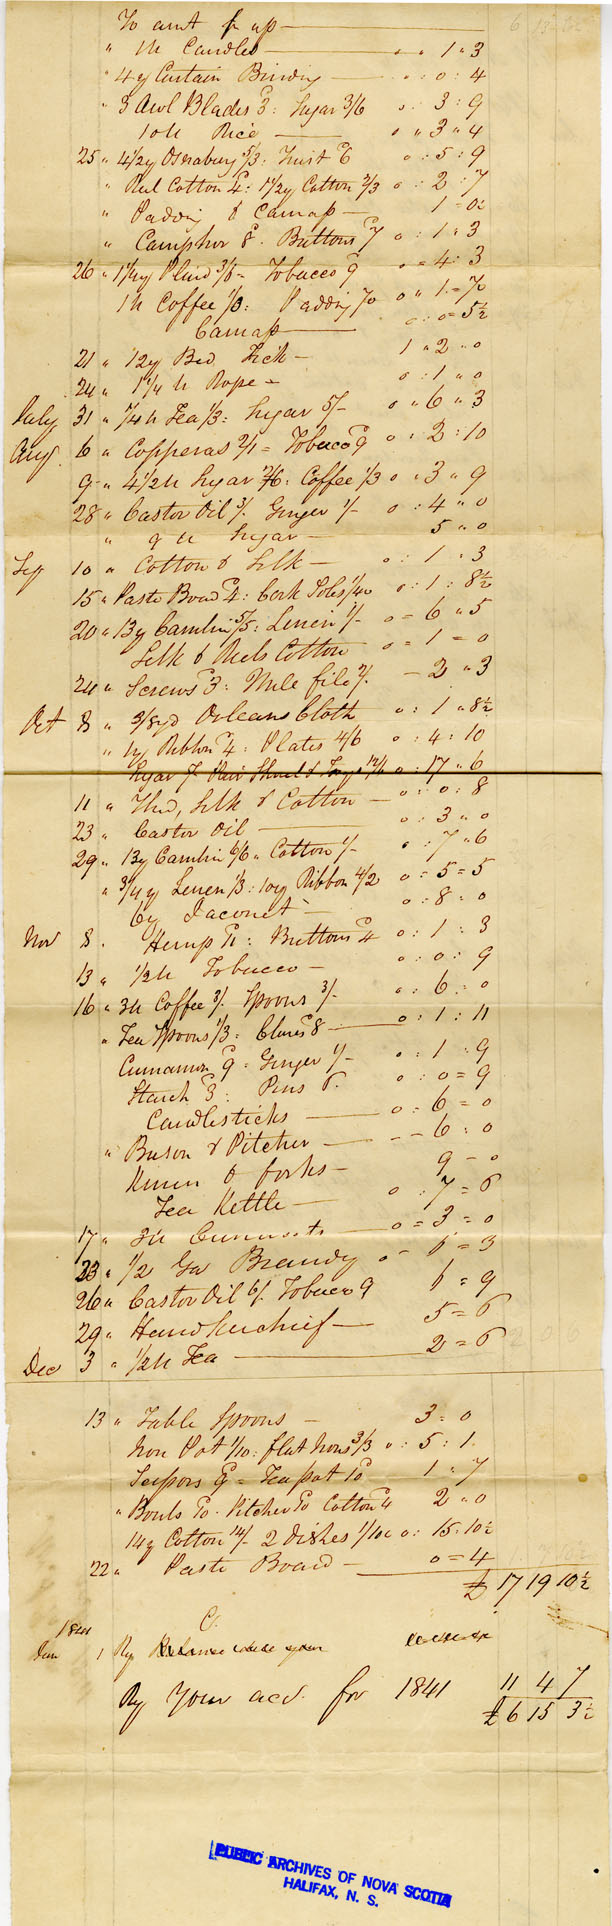 To amt fr up
" 1 lb Candles " " 1 " 3
" 4 y Curtain Binding 0 : 4
" 3 Awl Blades 3d : Sugar 3/6 3 : 9
10 lb Rice " " 3 " 4
25 " 4 1/2 y Osnaburg 5/3 : Twist 6d 5 : 9
" Reel Cotton 4d : 1 1/2 y Cotton 2/3 0 : 2 : 7
" Padding & Canvas
" Camphor 8d. Buttons 7d 0 : 1 : 3
26 " Plaid 3/6 = Tobacco 9d 4 : 3
1 lb Coffee 1/8 : Padding
Canvas 0 = 5 1/2
21 " 12 y Bed Tick 1 " 2 " 0
24 " 1 1/4 lb Rope 0 : 1 " 0
July 31 " Tea 1/3 : Sugar 5/- 0 " 6 " 3
Aug 6 " Copperas 2/1 = Tobacco 9d 0 : 2 : 10
9 " 4 1/2 lb Sugar 2/6 : Coffee 1/3 0 " 3 " 9
28 " Castor Oil 3/. Ginger 1/- 0 : 4 " 0
" 9 lb Sugar 5 " 0
Sep 10 " Cotton & Silk 0 : 1 " 3
15 " Paste Board 4d : Cork Soles 0 : 1 : 8 1/2
20 " 13 y Camblin 5/5 : Linen 1/- 0 = 6 " 5
Silk & Reels Cotton 0 = 1 = 0
24 " Screws 3d : Mill file 2/. 2 " 3
Oct 8 " 3/8 yd Orleans Cloth 0 : 1 " 8 1/2
" 1 y Ribbon 4d : Plates 4/6 0 : 4 : 10
Sugar 5/- Pair Shovel & Tongs 12/6 0 : 17 " 6
11 " Thd, Silk & Cotton 0 : 0 : 8
23 " Castor Oil 0 : 3 " 0
29 " 13 y Camblin 6/6 " Cotton 1/- 0 : 7 " 6
" 3/4 y Linen 1/3 : 10 y Ribbon 4/2 0 = 5 = 5
6 y Jaconet 0 : 8 : 0
Nov 8 . Hemp : Buttons 4d 0 : 1 : 3
13 " 1/2 lb Tobacco 0 : 9
16 " 3 lb Coffee 3/. Spoons 3/- 6 = 0
" Tea Spoons 1/3 : Cloves 8d 0 : 1 : 11
Cinnamon 9d : Ginger 1/- 0 : 1 : 9
Starch 3d : Pins 6. 0 : 0 = 9
Candlesticks 0 = 6 = 0
" Bason & Pitcher 6 : 0
Knives & forks 9 - 0
Tea Kettle 0 : 7 = 6
17 " 3 lb Currants 0 = 3 = 0
23 " 1/2 Ga Brandy 6 = 3
26 " Castor Oil 6/. Tobacco 9 6 = 9
29 " Handkerchief 5 = 6
Dec 3 " 1/2 lb Tea 2 = 6
13 " Table Spoons 3 : 0
Iron Pot 1/10 : flat Irons 3/3 0 : 5 : 1
Scissors 9d = Tea pot 10d 1 " 7
" Bowls 10d. Pitcher 10d Cotton 4d 2 " 0
14 y Cotton 14/- 2 Dishes 1/10 0 : 15 : 10 1/2
22 " Paste Board 0 = 4
£ 17 19 10 1/2
Cr.
Jan 1 By
By Your acct. for 1841 11 4 7
£ 6 15 3 1/2
PUBLIC ARCHIVES OF NOVA SCOTIA
HALIFAX, N. S.